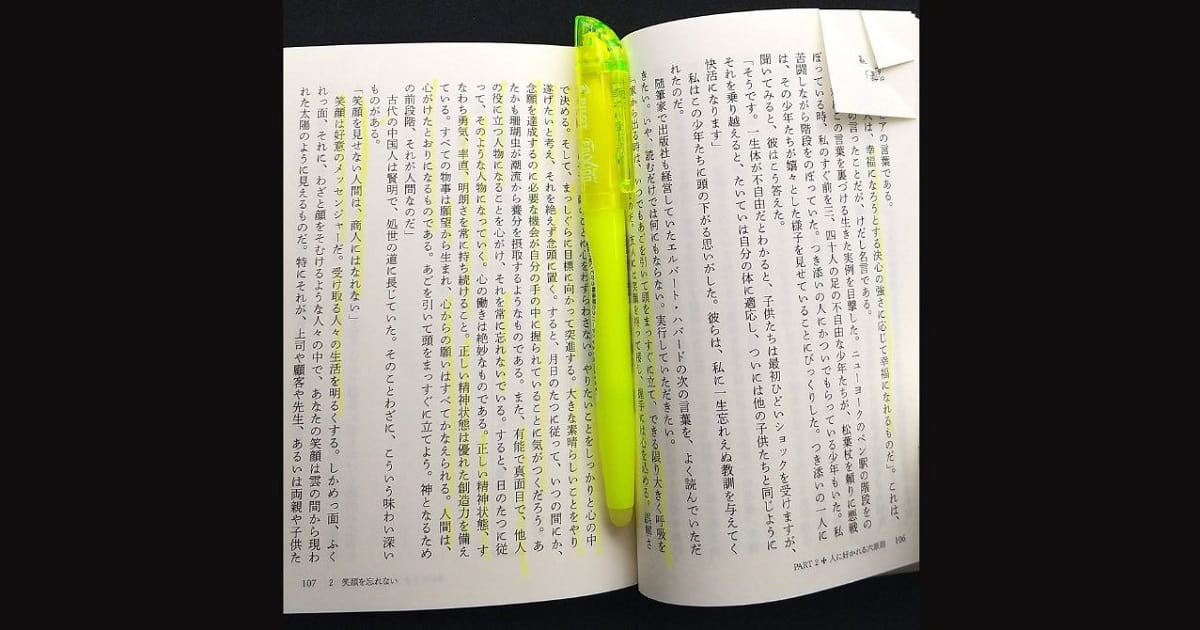 アの言葉である。
は、幸福になろうとする決心の強さに応じて幸福になれるものだ」。これは、
の言ったことだが、けだし名言である。
この言葉を裏づける生きた実例を目撃した。ニューヨークのペン駅の階段をの
ぼっている時、私のすぐ前を三、四十人の足の不自由な少年たちが、松葉杖を頼りに悪戦
苦闘しながら階段をのぼっていた。つき添いの人にかついでもらっている少年もいた。私
は、その少年たちが嬉々とした様子を見せていることにびっくりした。つき添いの一人に
聞いてみると、彼はこう答えた。
「そうです。一生体が不自由だとわかると、子供たちは最初ひどいショックを受けますが、
それを乗り越えると、たいていは自分の体に適応し、ついには他の子供たちと同じように
快活になります」
私はこの少年たちに頭の下がる思いがした。彼らは、私に一生忘れえぬ教訓を与えてく
れたのだ。
随筆家で出版社も経営していたエルバート・ハバードの次の言葉を、よく読んでいただ
きたい。いや、読むだけでは何にもならない。実行していただきたい。
家から出る時は、いつでもあごを引いて頭をまっすぐに立て、できる限り大きく呼吸を
106
PART 2 ✤ 人に好かれる六原則
心をわずらわさない。やりたいことをしっかりと心の中
で決める。そして、まっしぐらに目標に向かって突進する。大きな素晴らしいことをやり
遂げたいと考え、それを絶えず念頭に置く。すると、月日のたつに従って、いつの間にか、
念願を達成するのに必要な機会が自分の手の中に握られていることに気がつくだろう。あ
たかも珊瑚虫が潮流から養分を摂取するようなものである。また、有能で真面目で、他人
の役に立つ人物になることを心がけ、それを常に忘れないでいる。すると、日のたつに従
って、そのような人物になっていく。心の働きは絶妙なものである。正しい精神状態、す
なわち勇気、率直、明朗さを常に持ち続けること。正しい精神状態は優れた創造力を備え
ている。すべての物事は願望から生まれ、心からの願いはすべてかなえられる。人間は、
心がけたとおりになるものである。あごを引いて頭をまっすぐに立てよう。神となるため
の前段階、それが人間なのだ」
古代の中国人は賢明で、処世の道に長じていた。そのことわざに、こういう味わい深い
ものがある。
「笑顔を見せない人間は、商人にはなれない」
笑顔は好意のメッセンジャーだ。受け取る人々の生活を明るくする。しかめっ面、ふく
れっ面、それに、わざと顔をそむけるような人々の中で、あなたの笑顔は雲の間から現わ
れた太陽のように見えるものだ。特にそれが、上司や顧客や先生、あるいは両親や子供た
107 2 笑顔を忘れない